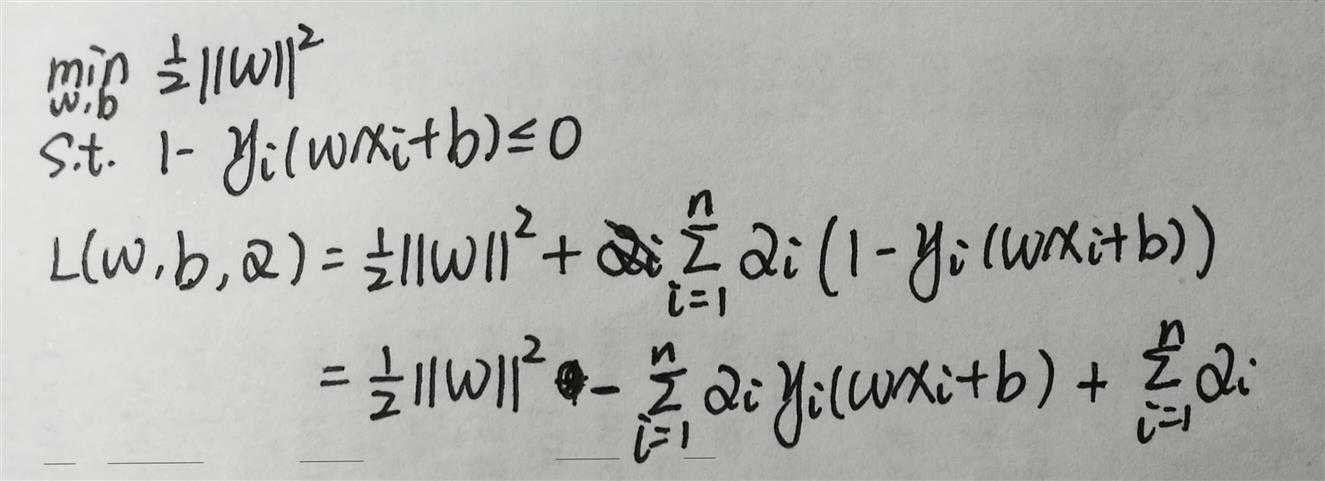 min_{w,b} ½||w||²
s.t. 1 - yᵢ(wxᵢ+b) ≤ 0
L(w,b,α) = ½||w||² + Σ_{i=1}^{n} αᵢ(1 - yᵢ(wxᵢ+b))
= ½||w||² - Σ_{i=1}^{n} αᵢyᵢ(wxᵢ+b) + Σ_{i=1}^{n} αᵢ